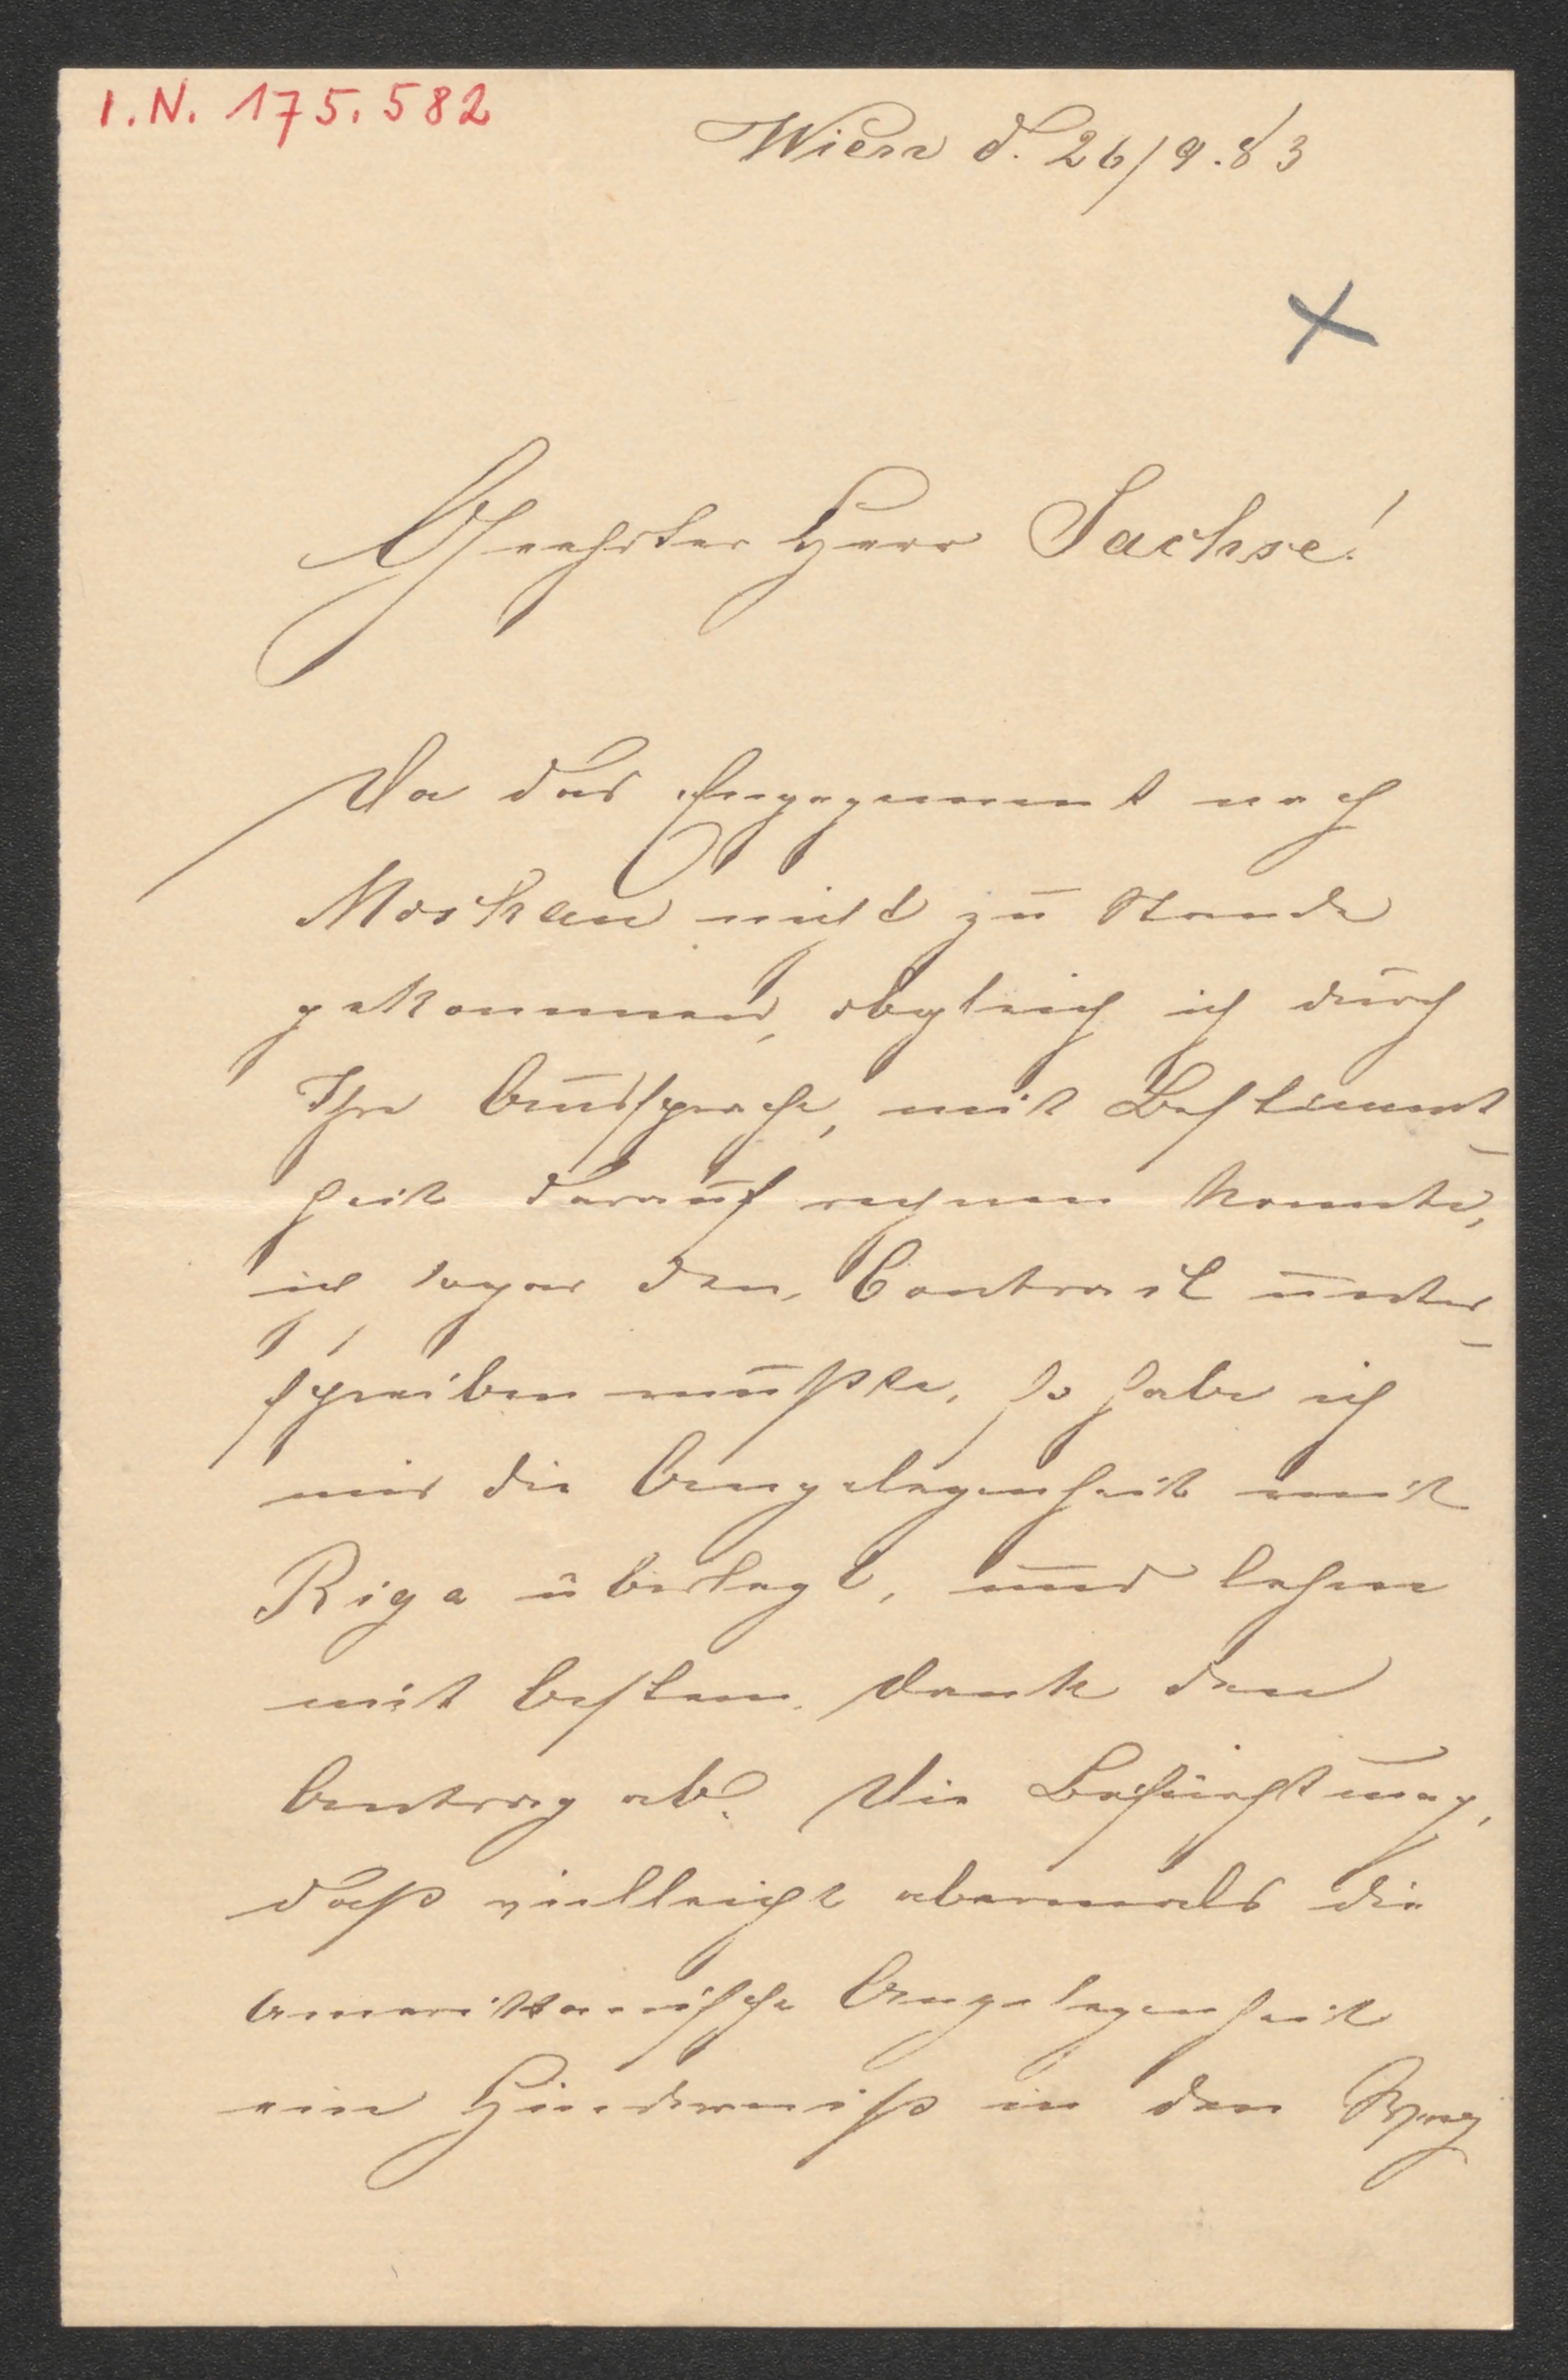 I.N. 175.582
Wien d. 26/9.83
Geehrter Herr Sachse!
Da das Engagement nach
Moskau nicht zu Stande
gekommen, obgleich ich durch
Ihre Aussprache, mit Bestimmt-
heit darauf rechnen konnte,
ich sogar den Contract unter-
schreiben mußte, so habe ich
mir die Angelegenheit mit
Riga überlegt, und lehne
mit bestem Dank den
Antrag ab. Die Befürchtung,
daß vielleicht abermals die
Amerikanische Angelegenheit
ein Hinderniß in den Weg